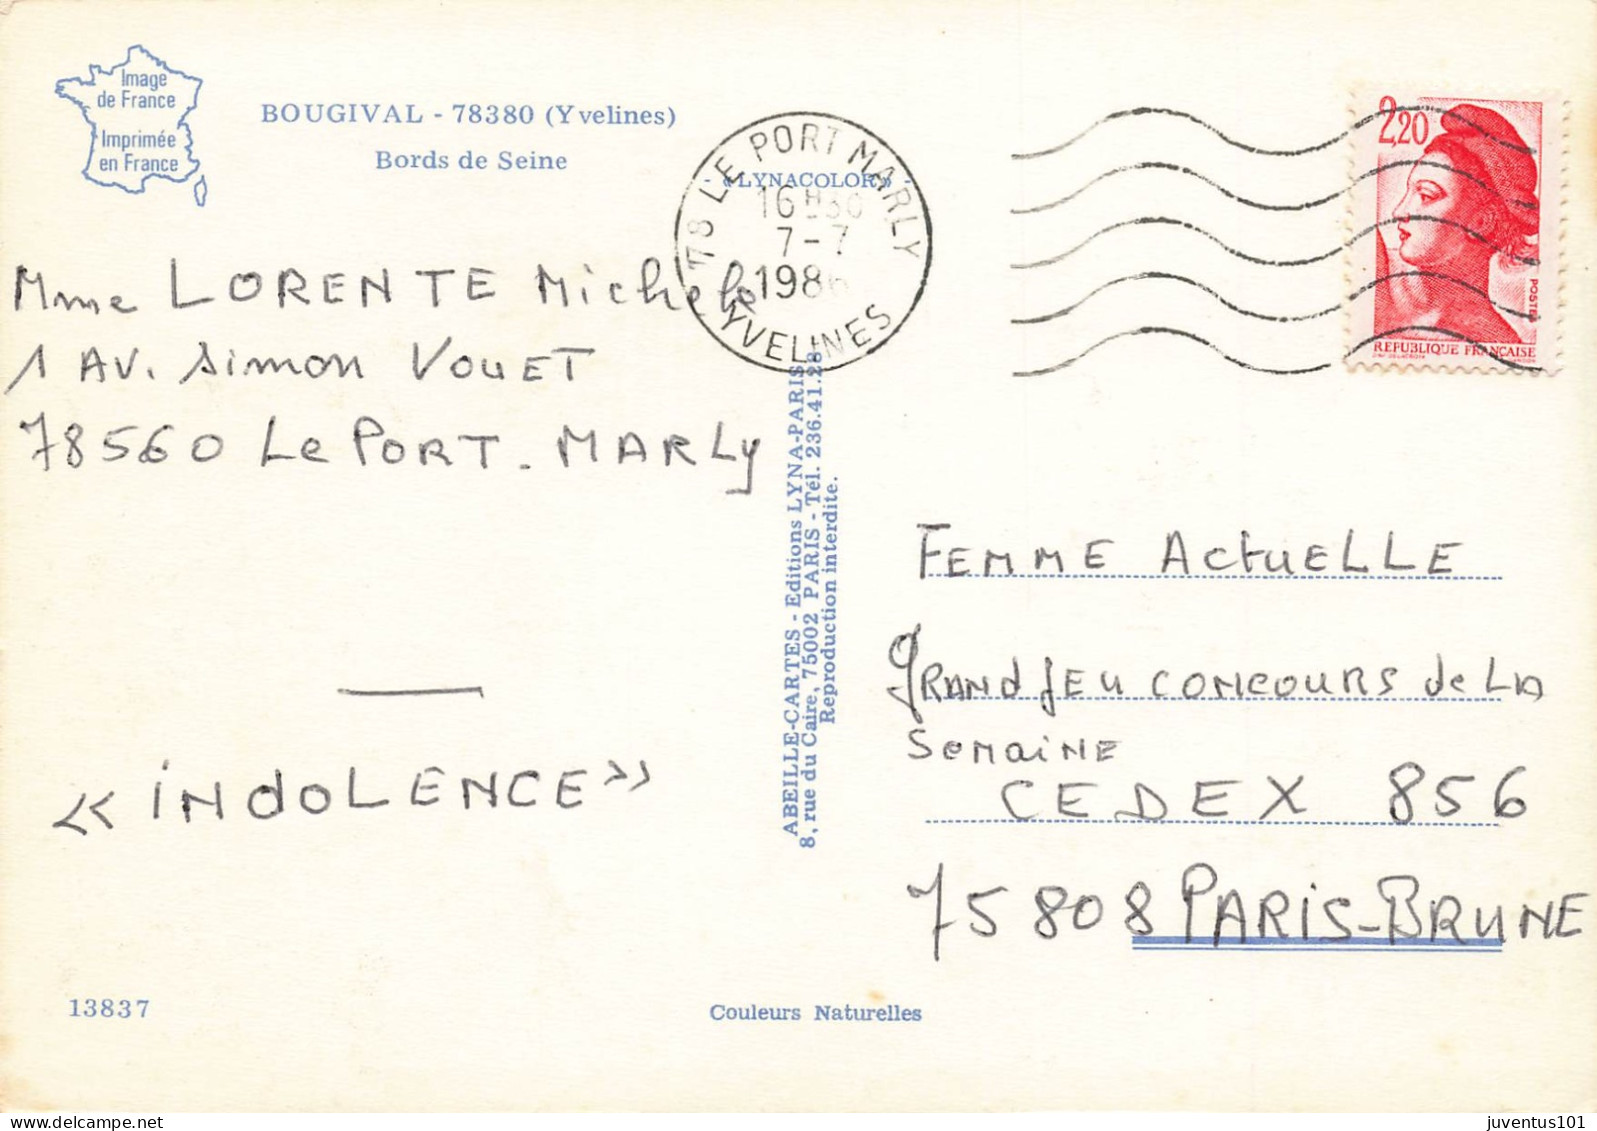 Image
de France
Imprimée
en France
BOUGIVAL - 78380 (Yvelines)
Bords de Seine
«LYNACOLOR»
78 LE PORT MARLY
16H30
7-7
1986
YVELINES
2,20
POSTES
REPUBLIQUE FRANÇAISE
Mme LORENTE Michele
1 AV. Simon VOUET
78560 Le PORT. MARLy
« iNdOLENCE »
ABEILLE-CARTES - Editions LYNA-PARIS
8, rue du Caire, 75002 PARIS - Tél. 236.41.28
Reproduction interdite.
FEMME ActuELLE
GRANd JEU CONCOURS de LA
SemaiNE
CEDEX 856
75808 PARIS-BRUNE
13837
Couleurs Naturelles
juventus101